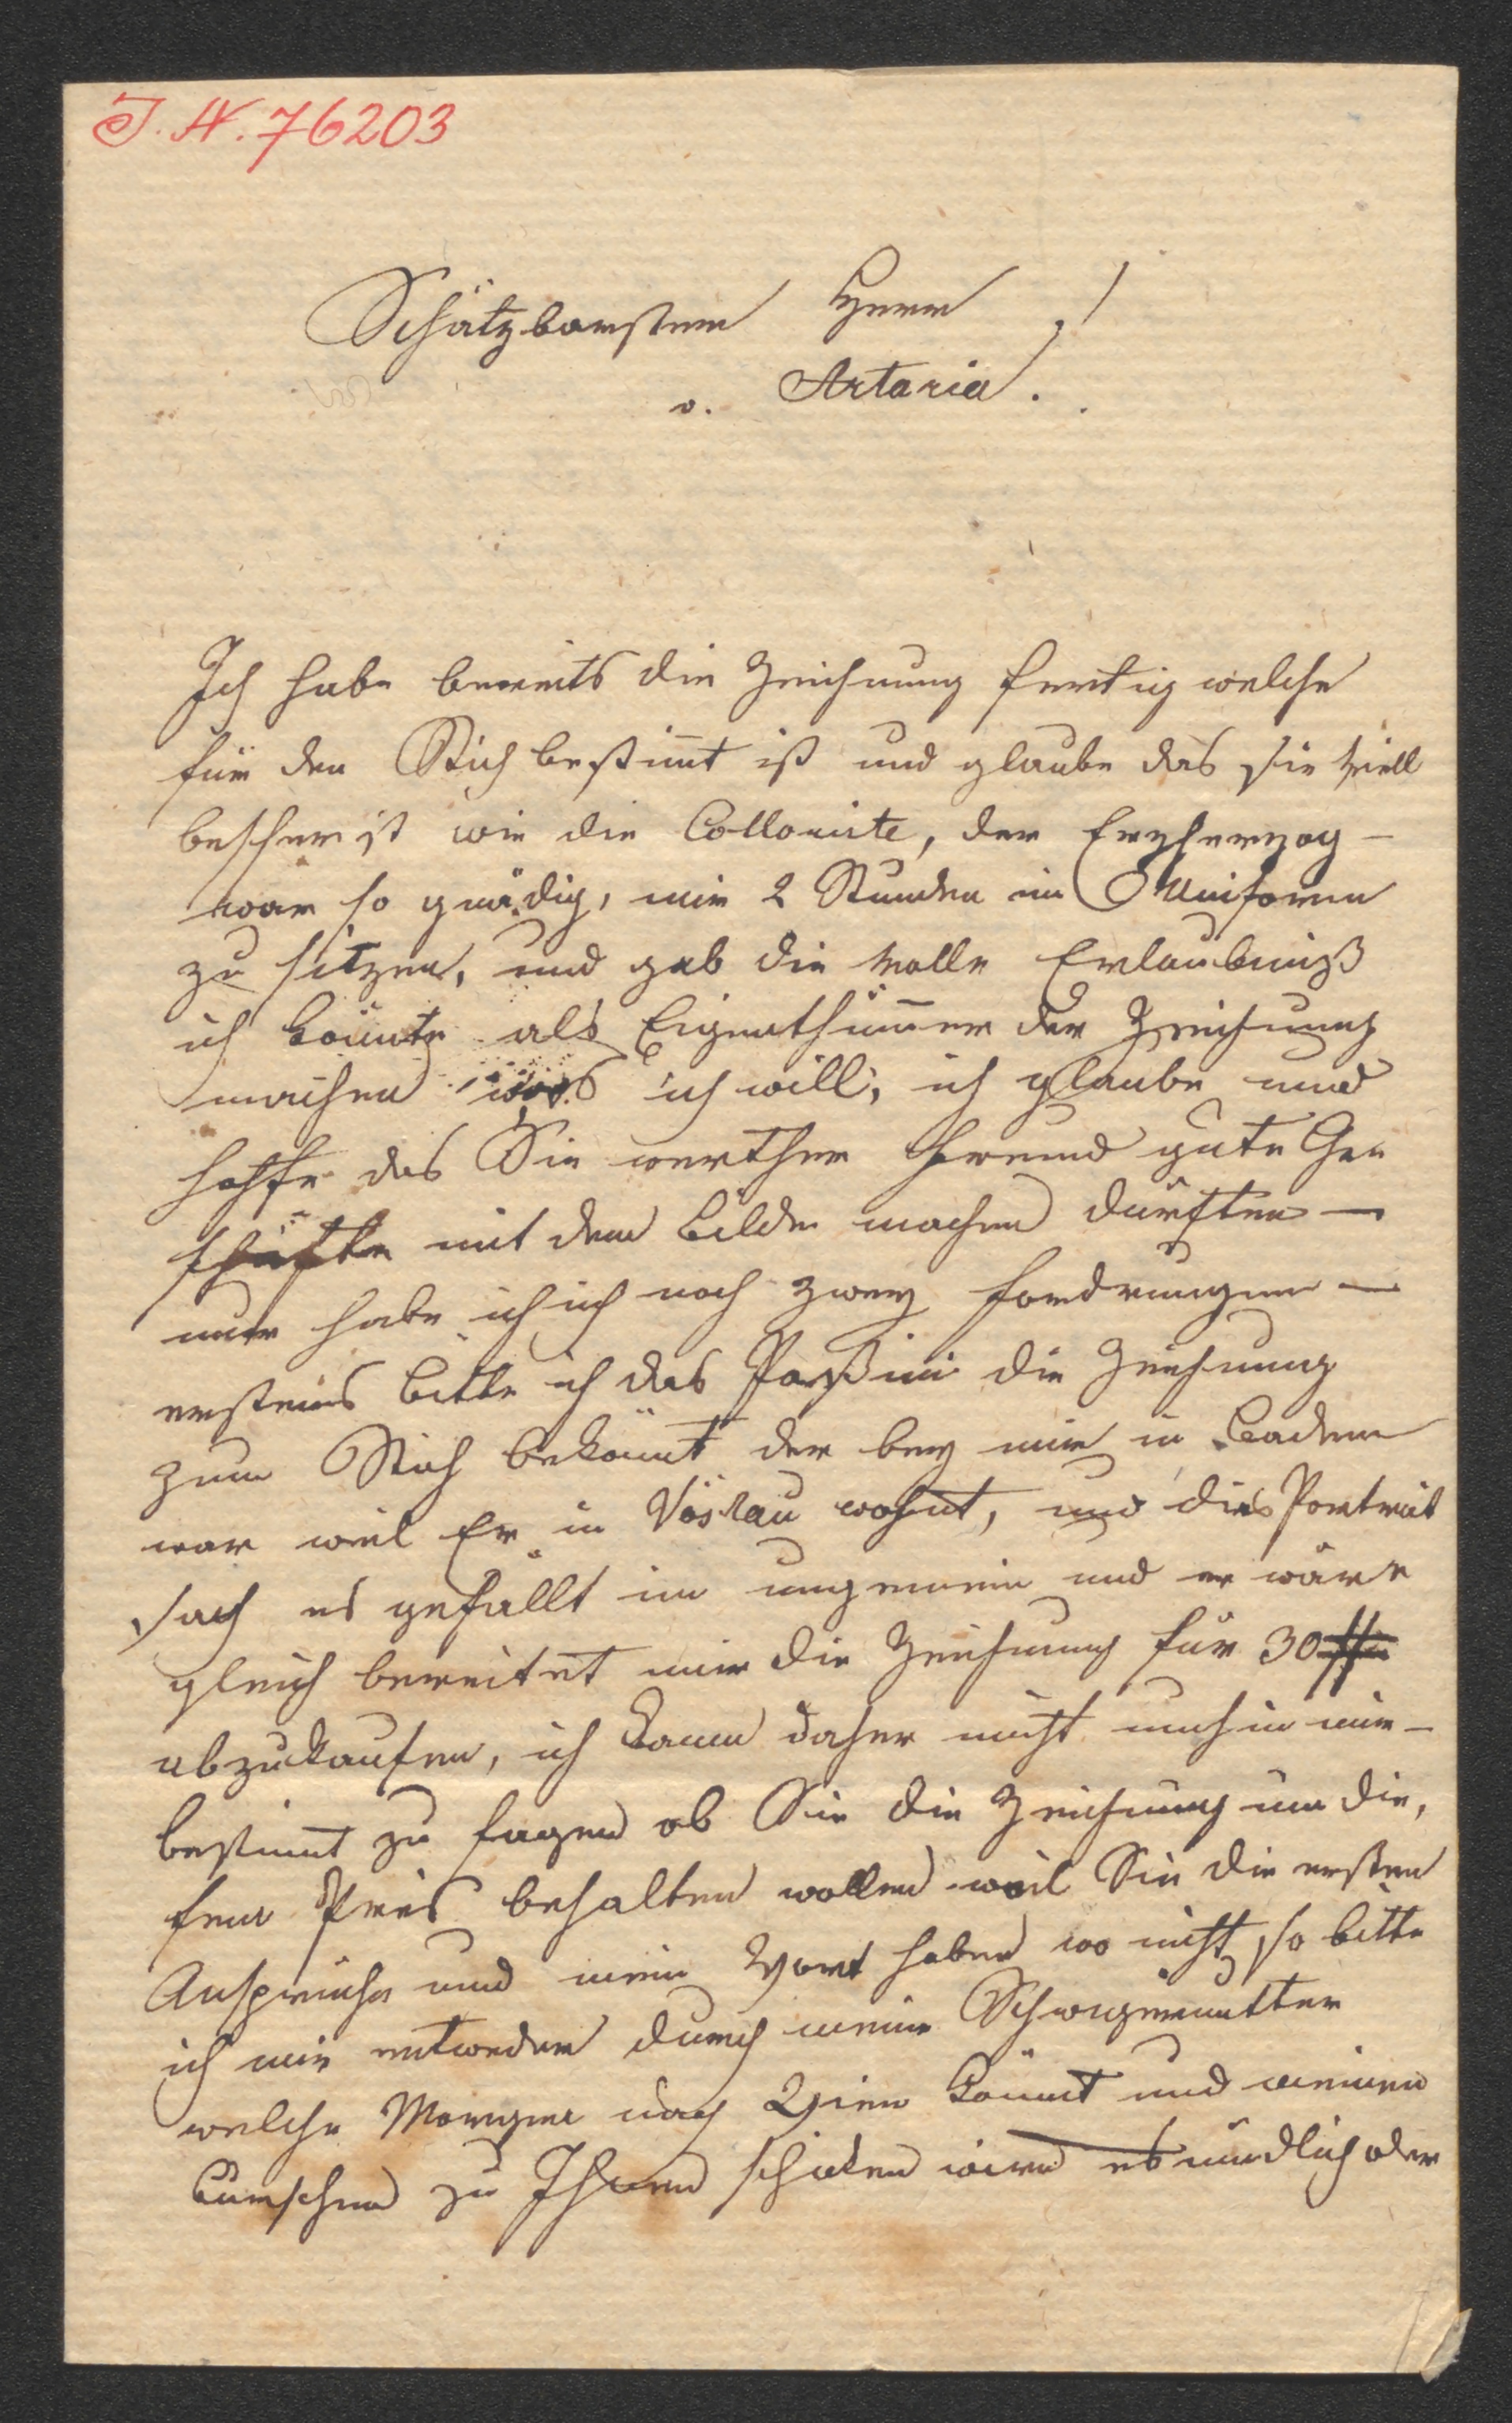 J. N. 76203
Schätzbarster Herr !
v. Artaria.
Ich habe bereits die Zeichnung fertig welche
für den Stich bestim̄t ist und glaube das sie viell
besser ist wie die Collorirte, der Erzherzog –
war so gnädig, mir 2 Stunden in Uniform
zu sitzen, und gab die volle Erlaubniß
ich könnte als Eigenthüm̄er der Zeichnung
machen was ich will, ich glaube und
hoffe das Sie werther Freund gute Ge
schäfte mit dem Bilde machen dürften –
nur habe ich noch zwey Fordrungen –
erstens bitte ich das Passini die Zeichnung
zum Stich beköm̄t der bey mir in Baden
war weil Er in Vöslau wohnt, und dies Portrait
sach es gefällt im ungemein und er wäre
gleich bereitet mir die Zeichnung für 30 #
abzukaufen, ich kann daher nicht umhin mir –
bestim̄t zu sagen ob Sie die Zeichnung um die,
sen Preis behalten wollen weil Sie die ersten
Ansprüche und mein Wort haben wo nicht, so bitte
ich mir entweder durch meine Schwigermutter
welche Morgen nach Wien köm̄t und meinen
Burschen zu Ihnen schicken wird es mündlich oder